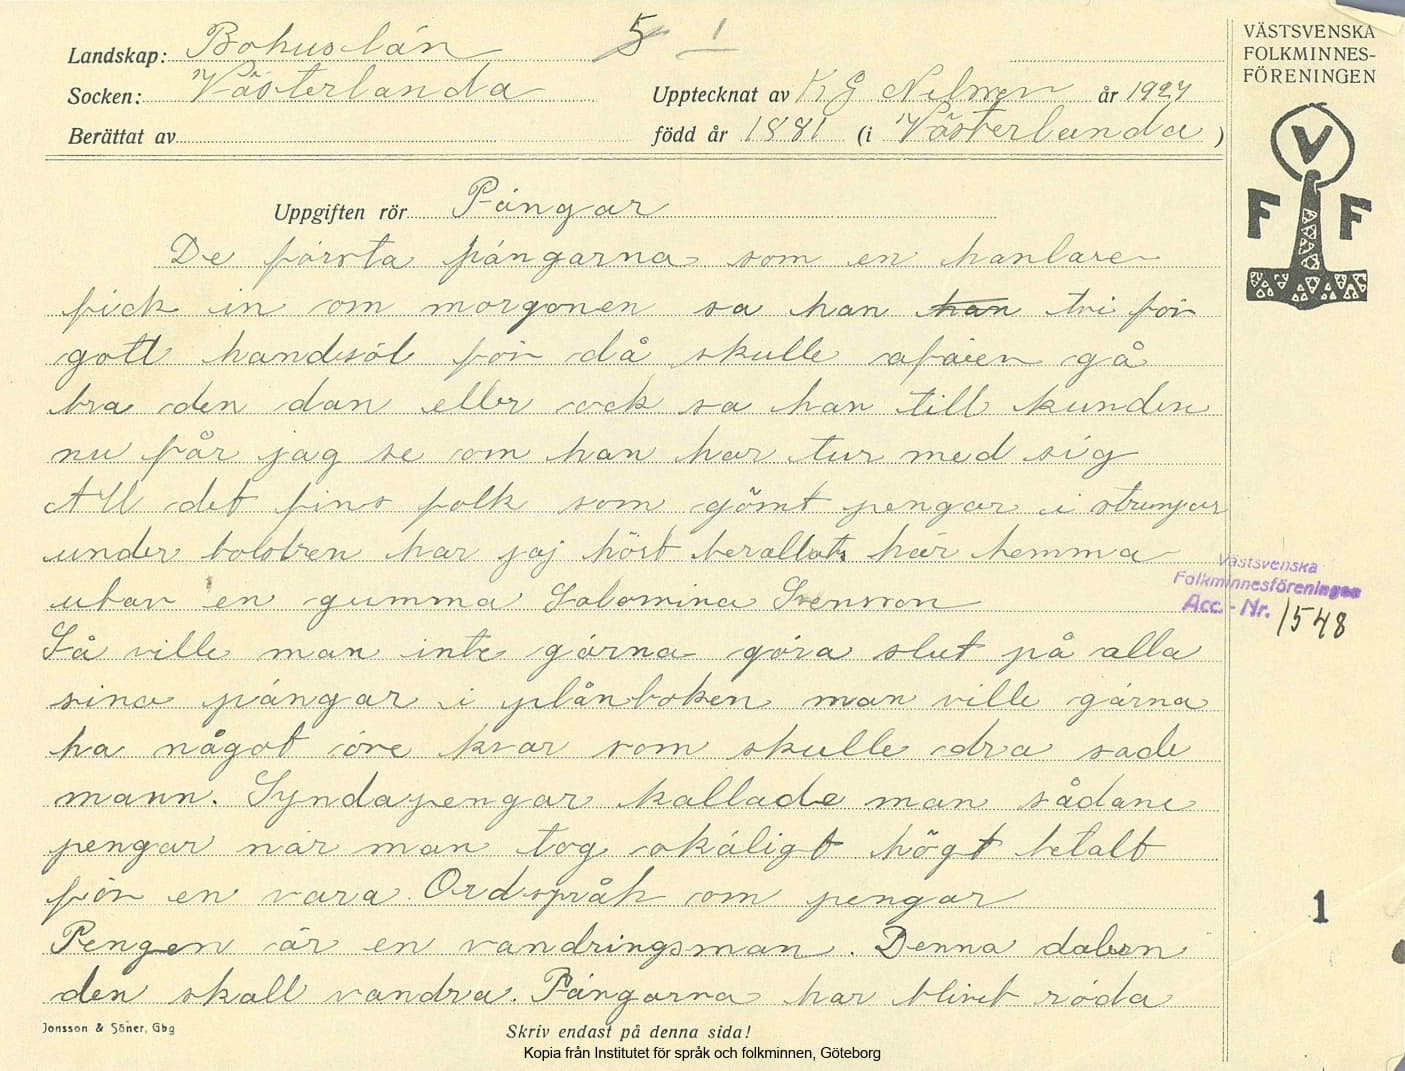 Landskap: Bohuslän 5 1
Socken: Västerlanda Upptecknat av K G Nelson år 1927
Berättat av född år 1881 (i Västerlanda)
VÄSTSVENSKA
FOLKMINNES-
FÖRENINGEN
V
F F
Uppgiften rör Pängar
De första pängarna som en hanlare
fick in om morgonen sa han han tvi för
gott handsöl för då skulle afären gå
bra den dan eller ock sa han till kunden
nu får jag se om han har tur med sig
At det fins folk som gömt pengar i strumpor
under bolstren har jag hört berattats här hemma
utav en gumma Salomina Svensson
Så ville man inte gärna göra slut på alla
sina pängar i plånboken man ville gärna
ha något öre kvar som skulle dra sade
mann. Syndapengar kallade man sådane
pengar när man tog okäligt högt betalt
för en vara. Ordspråk om pengar
Pengen är en vandringsman. Denna dalern
den skall vandra. Pängarna har blivit röda
Västsvenska
Folkminnesföreningen
Acc.-Nr. 1548
1
Jonsson & Söner, Gbg
Skriv endast på denna sida!
Kopia från Institutet för språk och folkminnen, Göteborg